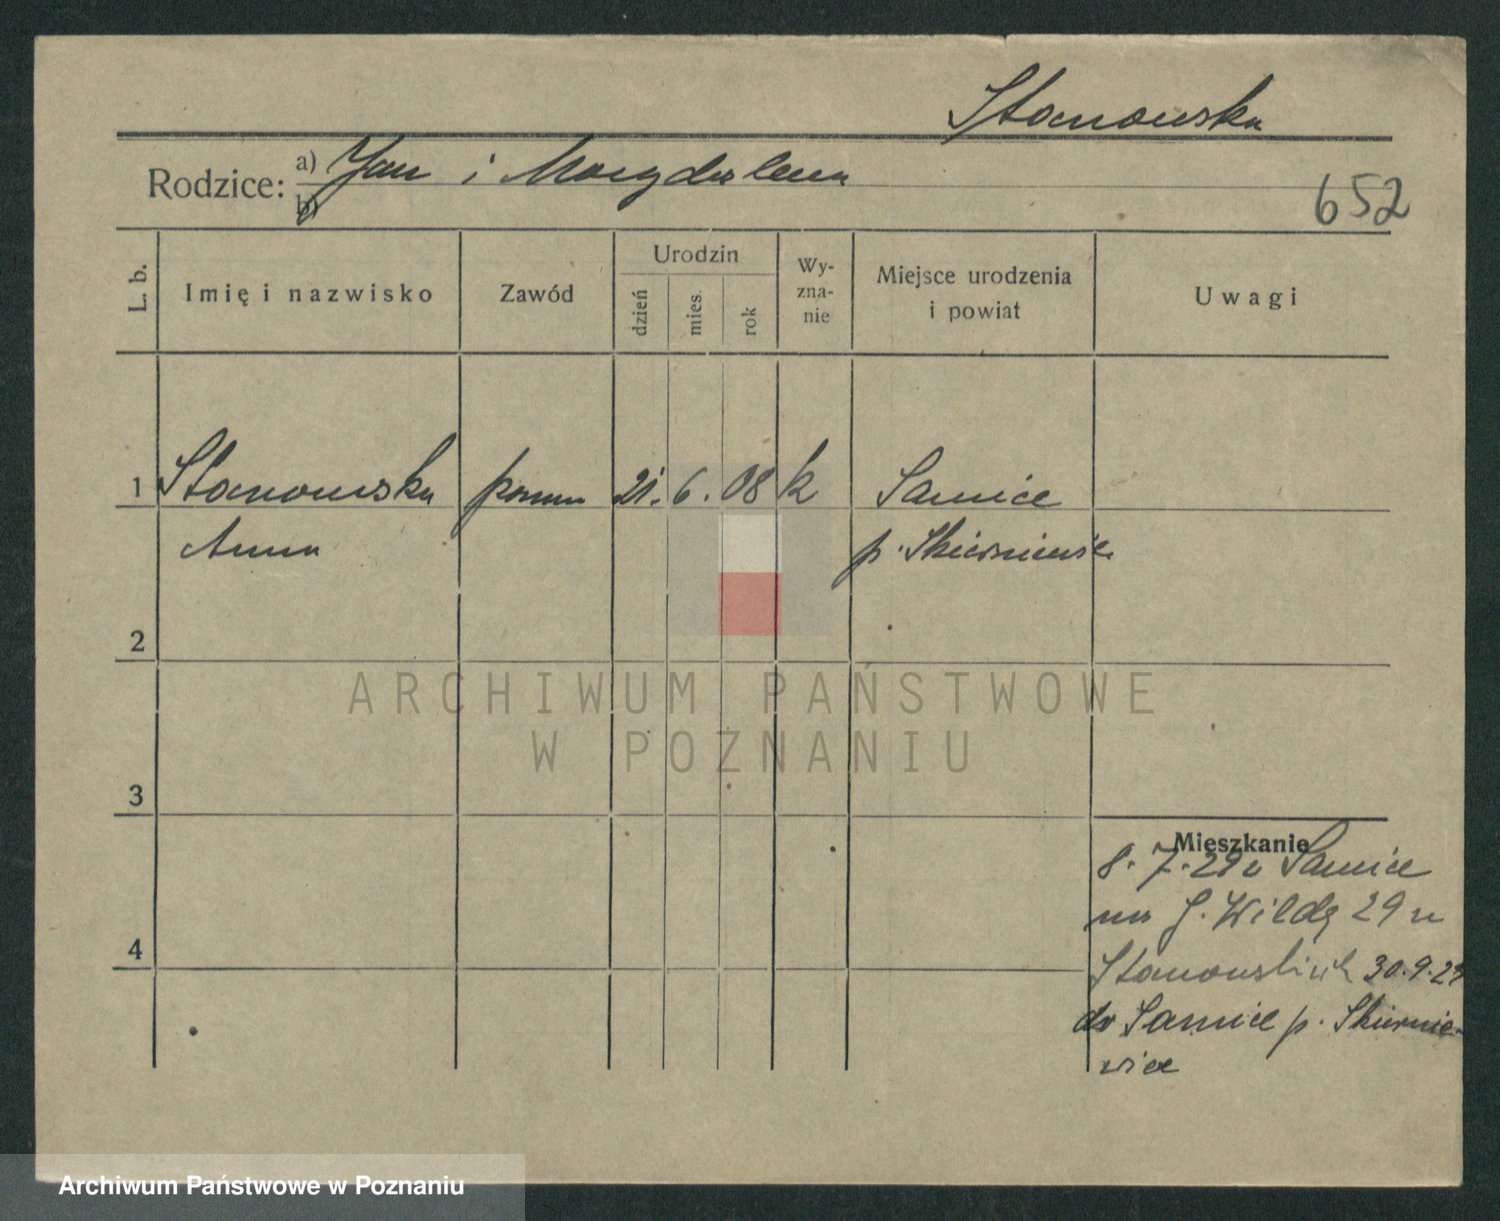 Stanowska
Rodzice: a) Jan i Magdalena
b)
652
L. b.
Imię i nazwisko
Zawód
Urodzin
dzień
mies.
rok
Wy-
zna-
nie
Miejsce urodzenia
i powiat
Uwagi
1 Stanowska 21. 6. 08 k Samice
Anna p. Skierniewice
2
3
4
Mieszkanie
8. 7. 29 z Samice
na G. Wildę 29 u
30.9.29
do Samice p. Skiernie-
wice
ARCHIWUM PAŃSTWOWE
W POZNANIU
Archiwum Państwowe w Poznaniu